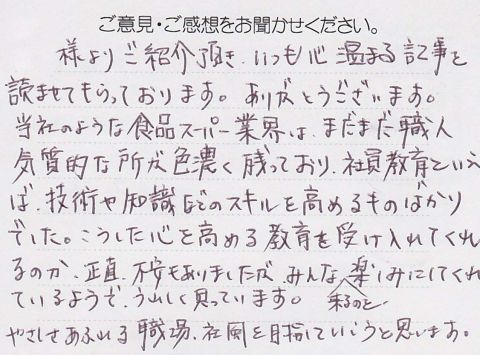 ご意見・ご感想をお聞かせください。
様よりご紹介頂き、いつも心温まる記事を
読ませてもらっております。ありがとうございます。
当社のような食品スーパー業界は、まだまだ職人
気質的な所が色濃く残っており、社員教育といえ
ば、技術や知識などのスキルを高めるものばかり
でした。こうした心を高める教育を受け入れてくれ
るのか、正直、不安もありましたが、みんな、楽しみにしてくれ
来るのを
ているようで、うれしく思っています。
やさしさあふれる職場、社風を目指していこうと思います。